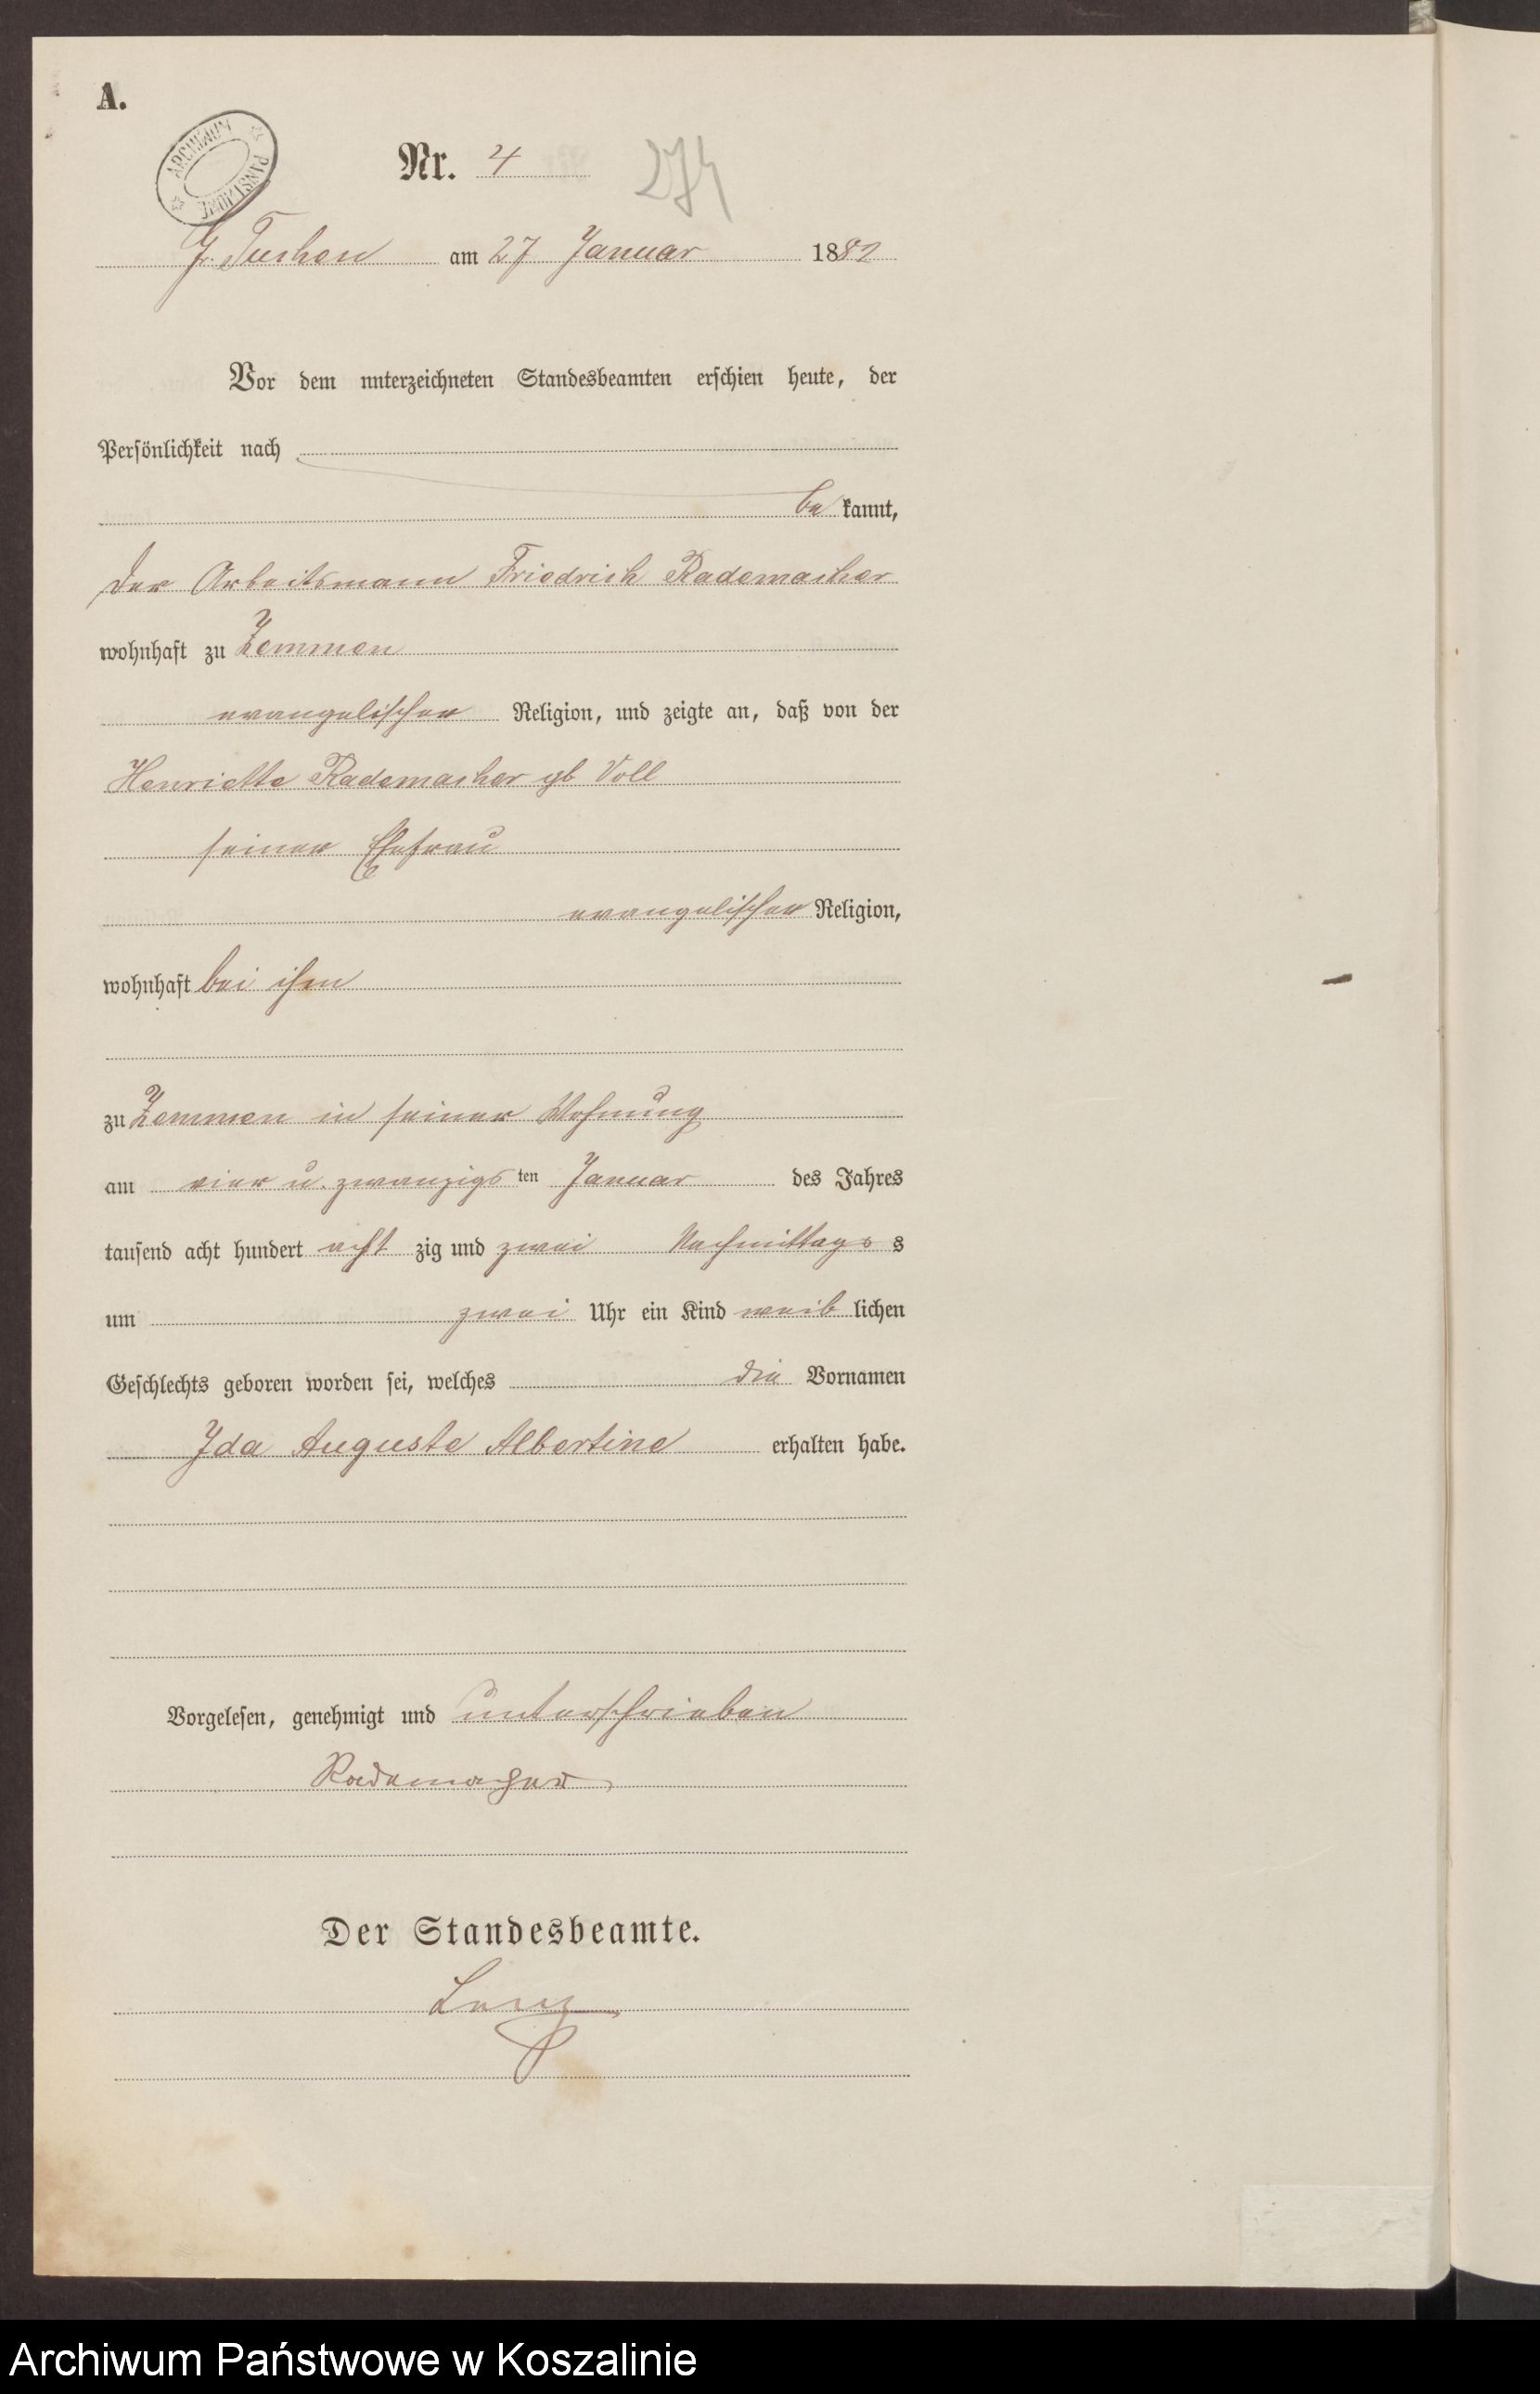 A.
ARCHIWUM PAŃSTWOWE
Nr. 4 274
Gr. Tuchen am 27 Januar 1882
Vor dem nnterzeichneten Standesbeamten erschien heute, der
Persönlichkeit nach
be kannt,
der Arbeitsmann Friedrich Rademacher
wohnhaft zu Zemmen
evangelischer Religion, und zeigte an, daß von der
Henriette Rademacher gb Voll
seiner Ehefrau
evangelischer Religion,
wohnhaft bei ihm
zu Zemmen in seiner Wohnung
am vier u. zwanzigs ten Januar des Jahres
tausend acht hundert acht zig und zwei Nachmittags s
um zwei Uhr ein Kind weib lichen
Geschlechts geboren worden sei, welches die Vornamen
Ida Auguste Albertine erhalten habe.
Vorgelesen, genehmigt und unterschrieben
Rademacher
Der Standesbeamte.
Archiwum Państwowe w Koszalinie